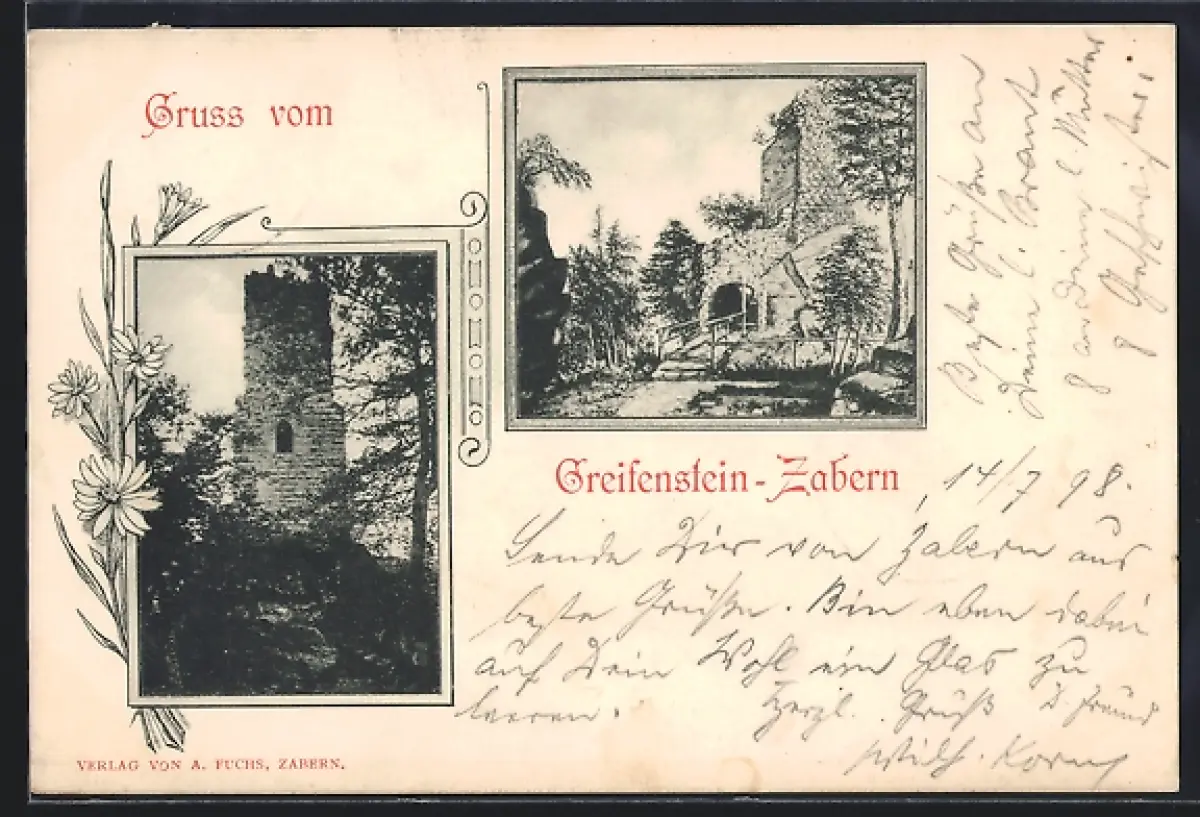 Gruss vom
Greifenstein-Zabern
14/7 98.
Sende Dir von Zabern aus
beste Grüße. Bin eben dabei
auf Dein Wohl ein Glas zu
leeren.
Herzl. Grüß D. Freund
Wilh. Korn
Beste Grüße an
Deine l. Braut
an Deine l. Mutter
Geschwister
VERLAG VON A. FUCHS, ZABERN.